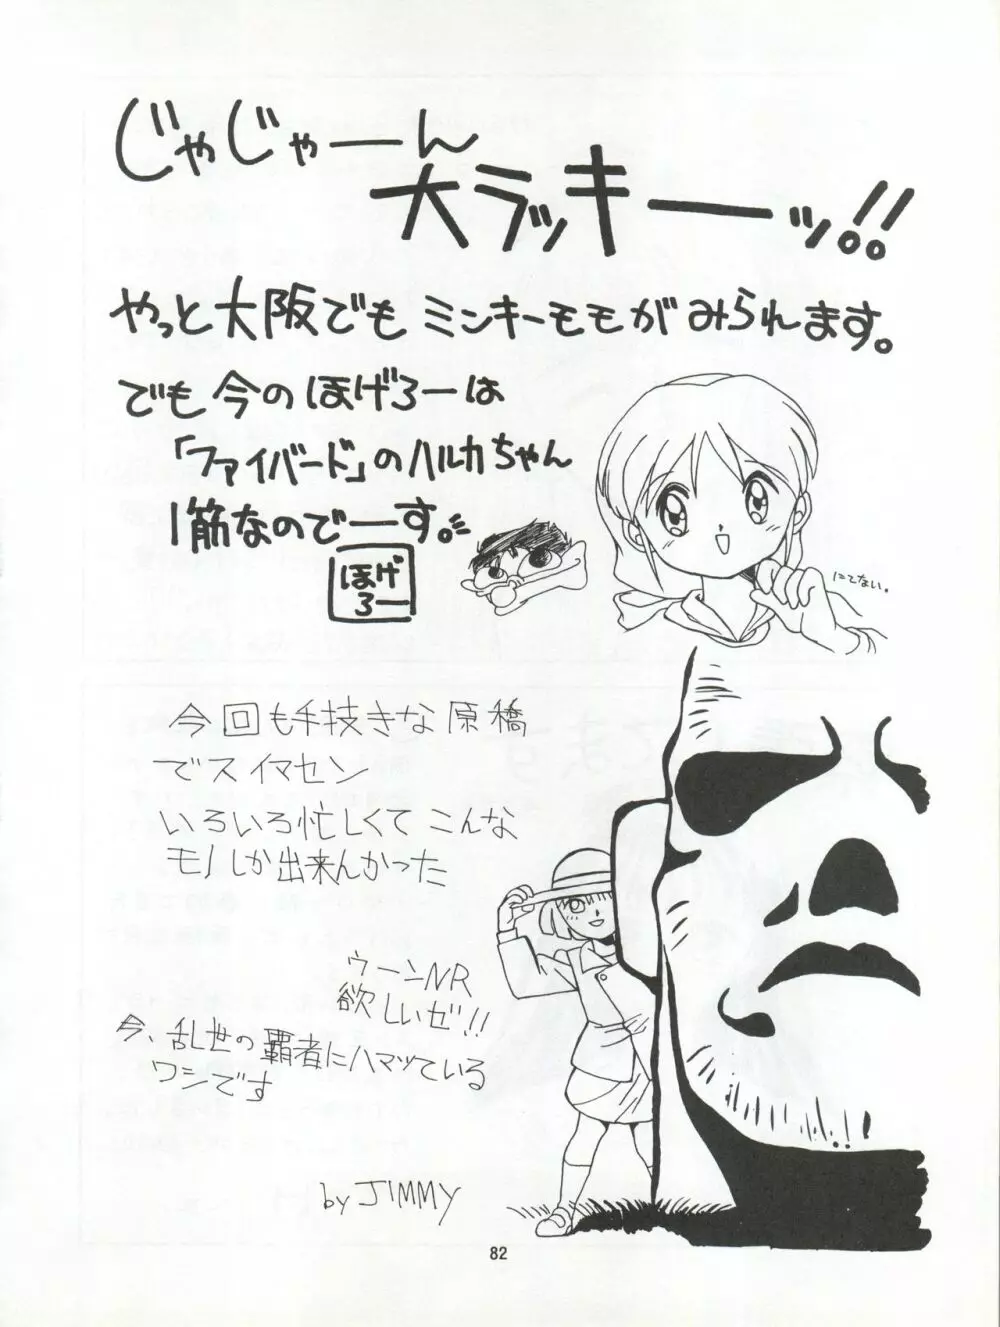 じゃじゃーん
大ラッキーーッ!!
やっと大阪でもミンキーモモがみられます。
でも今のほげろーは
「ファイバード」のハルカちゃん
1筋なのでーす。
ほげ
ろー
にてない。
今回も手技きな原橋
でスイマセン
いろいろ忙しくてこんな
モノしか出来んかった
ウーンNR
欲しいぜ!!
今、乱世の覇者にハマッている
ワシです
by JIMMY
82